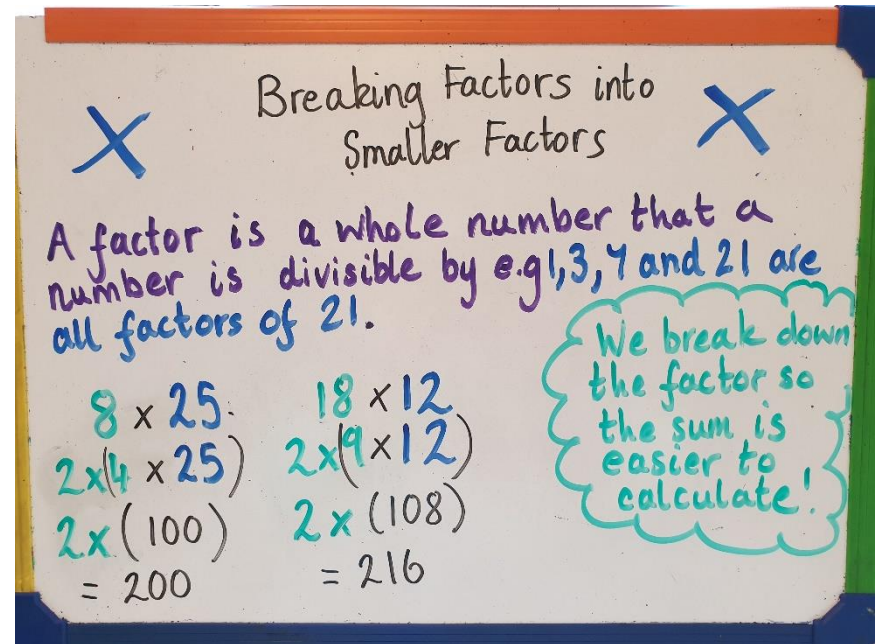 Breaking Factors into
Smaller Factors
A factor is a whole number that a
number is divisible by e.g 1, 3, 7 and 21 are
all factors of 21.
8 × 25
2×(4 × 25)
2× (100)
= 200
18 × 12
2×(9 × 12)
2× (108)
= 216
We break down
the factor so
the sum is
easier to
calculate!